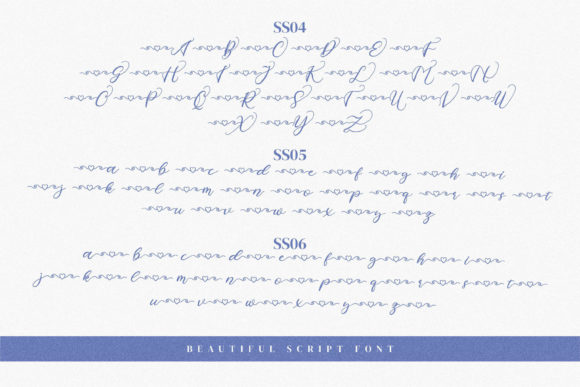 SS04
A B C D E F
G H I J K L M N
O P Q R S T U V W
X Y Z
SS05
a b c d e f g h i
j k l m n o p q r s t
u v w x y z
SS06
a b c d e f g h i
j k l m n o p q r s t
u v w x y z
BEAUTIFUL SCRIPT FONT